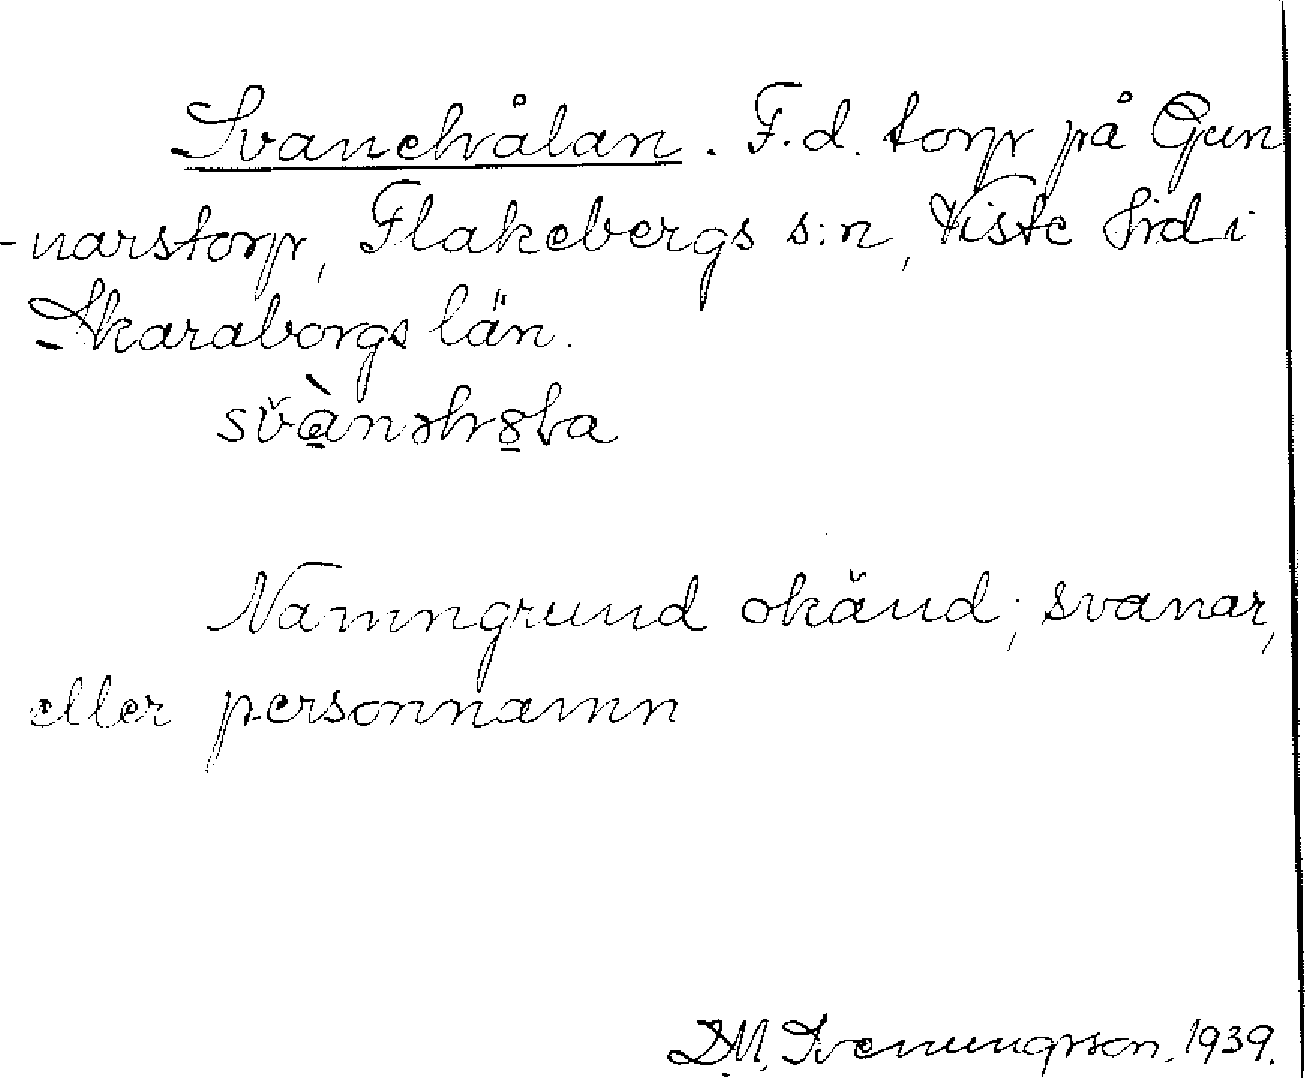 Svanehålan. F.d. torp på Gun
-narstorp, Flakebergs s:n, Viste hrd i
Skaraborgs län.
Namngrund okänd; svanar,
eller personnamn
D.M. Svenungsson. 1939.